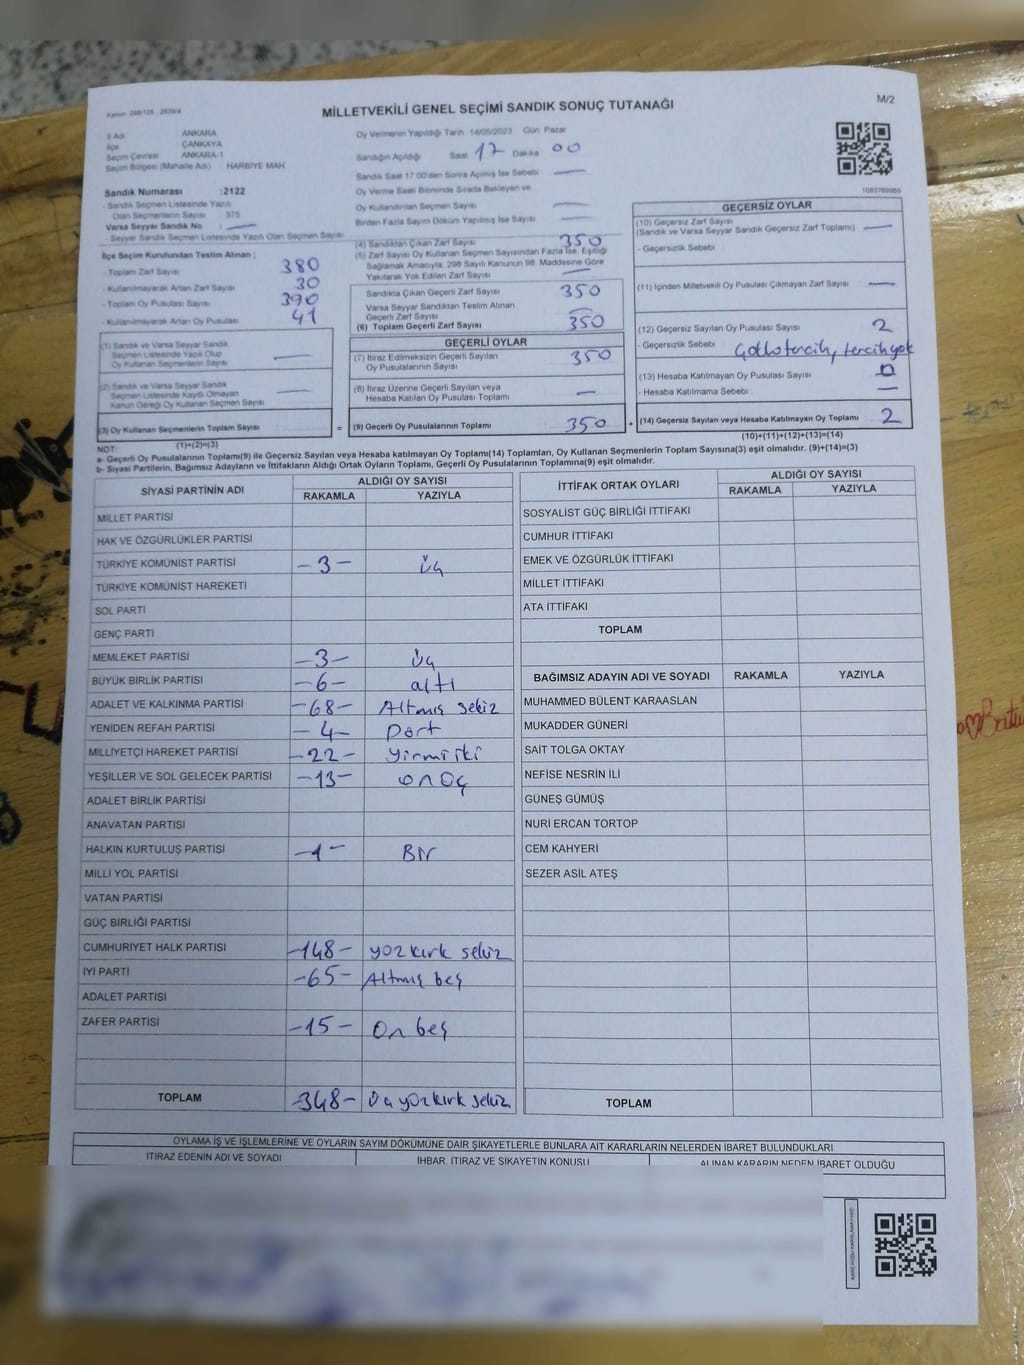 Kanun: 298/105 , 2839/A
MİLLETVEKİLİ GENEL SEÇİMİ SANDIK SONUÇ TUTANAĞI
M/2
İl Adı ANKARA
İlçe ÇANKAYA
Seçim Çevresi ANKARA-1
Seçim Bölgesi (Mahalle Adı) HARBİYE MAH.
Sandık Numarası :2122
- Sandık Seçmen Listesinde Yazılı
Olan Seçmenlerin Sayısı 375
Varsa Seyyar Sandık No : —
- Seyyar Sandık Seçmen Listesinde Yazılı Olan Seçmen Sayısı
İlçe Seçim Kurulundan Teslim Alınan ;
- Toplam Zarf Sayısı 380
- Kullanılmayarak Artan Zarf Sayısı 30
- Toplam Oy Pusulası Sayısı 390
- Kullanılmayarak Artan Oy Pusulası 41
(1) Sandık ve Varsa Seyyar Sandık
Seçmen Listesinde Yazılı Olup
Oy Kullanan Seçmenlerin Sayısı —
(2) Sandık ve Varsa Seyyar Sandık
Seçmen Listesinde Kayıtlı Olmayan
Kanun Gereği Oy Kullanan Seçmen Sayısı —
(3) Oy Kullanan Seçmenlerin Toplam Sayısı =
(1)+(2)=(3)
Oy Vermenin Yapıldığı Tarih 14/05/2023 Gün Pazar
Sandığın Açıldığı Saat 17 Dakika 00
Sandık Saat 17:00'den Sonra Açılmış İse Sebebi —
Oy Verme Saati Bitiminde Sırada Bekleyen ve
Oy Kullandırılan Seçmen Sayısı —
Birden Fazla Sayım Döküm Yapılmış İse Sayısı —
(4) Sandıktan Çıkan Zarf Sayısı 350
(5) Zarf Sayısı Oy Kullanan Seçmen Sayısından Fazla İse, Eşitliği
Sağlamak Amacıyla, 298 Sayılı Kanunun 98. Maddesine Göre
Yakılarak Yok Edilen Zarf Sayısı —
Sandıkta Çıkan Geçerli Zarf Sayısı 350
Varsa Seyyar Sandıktan Teslim Alınan
Geçerli Zarf Sayısı —
(6) Toplam Geçerli Zarf Sayısı 350
GEÇERLİ OYLAR
(7) İtiraz Edilmeksizin Geçerli Sayılan
Oy Pusulalarının Sayısı 350
(8) İtiraz Üzerine Geçerli Sayılan veya
Hesaba Katılan Oy Pusulası Toplamı —
(9) Geçerli Oy Pusulalarının Toplamı 350 +
1083769969
GEÇERSİZ OYLAR
(10) Geçersiz Zarf Sayısı
(Sandık ve Varsa Seyyar Sandık Geçersiz Zarf Toplamı) —
- Geçersizlik Sebebi
(11) İçinden Milletvekili Oy Pusulası Çıkmayan Zarf Sayısı —
(12) Geçersiz Sayılan Oy Pusulası Sayısı 2
- Geçersizlik Sebebi Çoklu tercih, tercih yok
(13) Hesaba Katılmayan Oy Pusulası Sayısı
- Hesaba Katılmama Sebebi —
(14) Geçersiz Sayılan veya Hesaba Katılmayan Oy Toplamı 2
(10)+(11)+(12)+(13)=(14)
NOT:
a- Geçerli Oy Pusulalarının Toplamı(9) ile Geçersiz Sayılan veya Hesaba katılmayan Oy Toplamı(14) Toplamları, Oy Kullanan Seçmenlerin Toplam Sayısına(3) eşit olmalıdır. (9)+(14)=(3)
b- Siyasi Partilerin, Bağımsız Adayların ve İttifakların Aldığı Ortak Oyların Toplamı, Geçerli Oy Pusulalarının Toplamına(9) eşit olmalıdır.
SİYASİ PARTİNİN ADI ALDIĞI OY SAYISI
RAKAMLA YAZIYLA
MİLLET PARTİSİ
HAK VE ÖZGÜRLÜKLER PARTİSİ
TÜRKİYE KOMÜNİST PARTİSİ -3- üç
TÜRKİYE KOMÜNİST HAREKETİ
SOL PARTİ
GENÇ PARTİ
MEMLEKET PARTİSİ -3- üç
BÜYÜK BİRLİK PARTİSİ -6- altı
ADALET VE KALKINMA PARTİSİ -68- Altmış sekiz
YENİDEN REFAH PARTİSİ -4- Dört
MİLLİYETÇİ HAREKET PARTİSİ -22- yirmi iki
YEŞİLLER VE SOL GELECEK PARTİSİ -13- on üç
ADALET BİRLİK PARTİSİ
ANAVATAN PARTİSİ
HALKIN KURTULUŞ PARTİSİ -1- Bir
MİLLİ YOL PARTİSİ
VATAN PARTİSİ
GÜÇ BİRLİĞİ PARTİSİ
CUMHURİYET HALK PARTİSİ -148- yüz kırk sekiz
İYİ PARTİ -65- Altmış beş
ADALET PARTİSİ
ZAFER PARTİSİ -15- On beş
TOPLAM -348- üç yüz kırk sekiz
İTTİFAK ORTAK OYLARI ALDIĞI OY SAYISI
RAKAMLA YAZIYLA
SOSYALİST GÜÇ BİRLİĞİ İTTİFAKI
CUMHUR İTTİFAKI
EMEK VE ÖZGÜRLÜK İTTİFAKI
MİLLET İTTİFAKI
ATA İTTİFAKI
TOPLAM
BAĞIMSIZ ADAYIN ADI VE SOYADI RAKAMLA YAZIYLA
MUHAMMED BÜLENT KARAASLAN
MUKADDER GÜNERİ
SAİT TOLGA OKTAY
NEFİSE NESRİN İLİ
GÜNEŞ GÜMÜŞ
NURİ ERCAN TORTOP
CEM KAHYERİ
SEZER ASİL ATEŞ
TOPLAM
OYLAMA İŞ VE İŞLEMLERİNE VE OYLARIN SAYIM DÖKÜMÜNE DAİR ŞİKAYETLERLE BUNLARA AİT KARARLARIN NELERDEN İBARET BULUNDUKLARI
İTİRAZ EDENİN ADI VE SOYADI İHBAR, İTİRAZ VE ŞİKAYETİN KONUSU ALINAN KARARIN NEDEN İBARET OLDUĞU